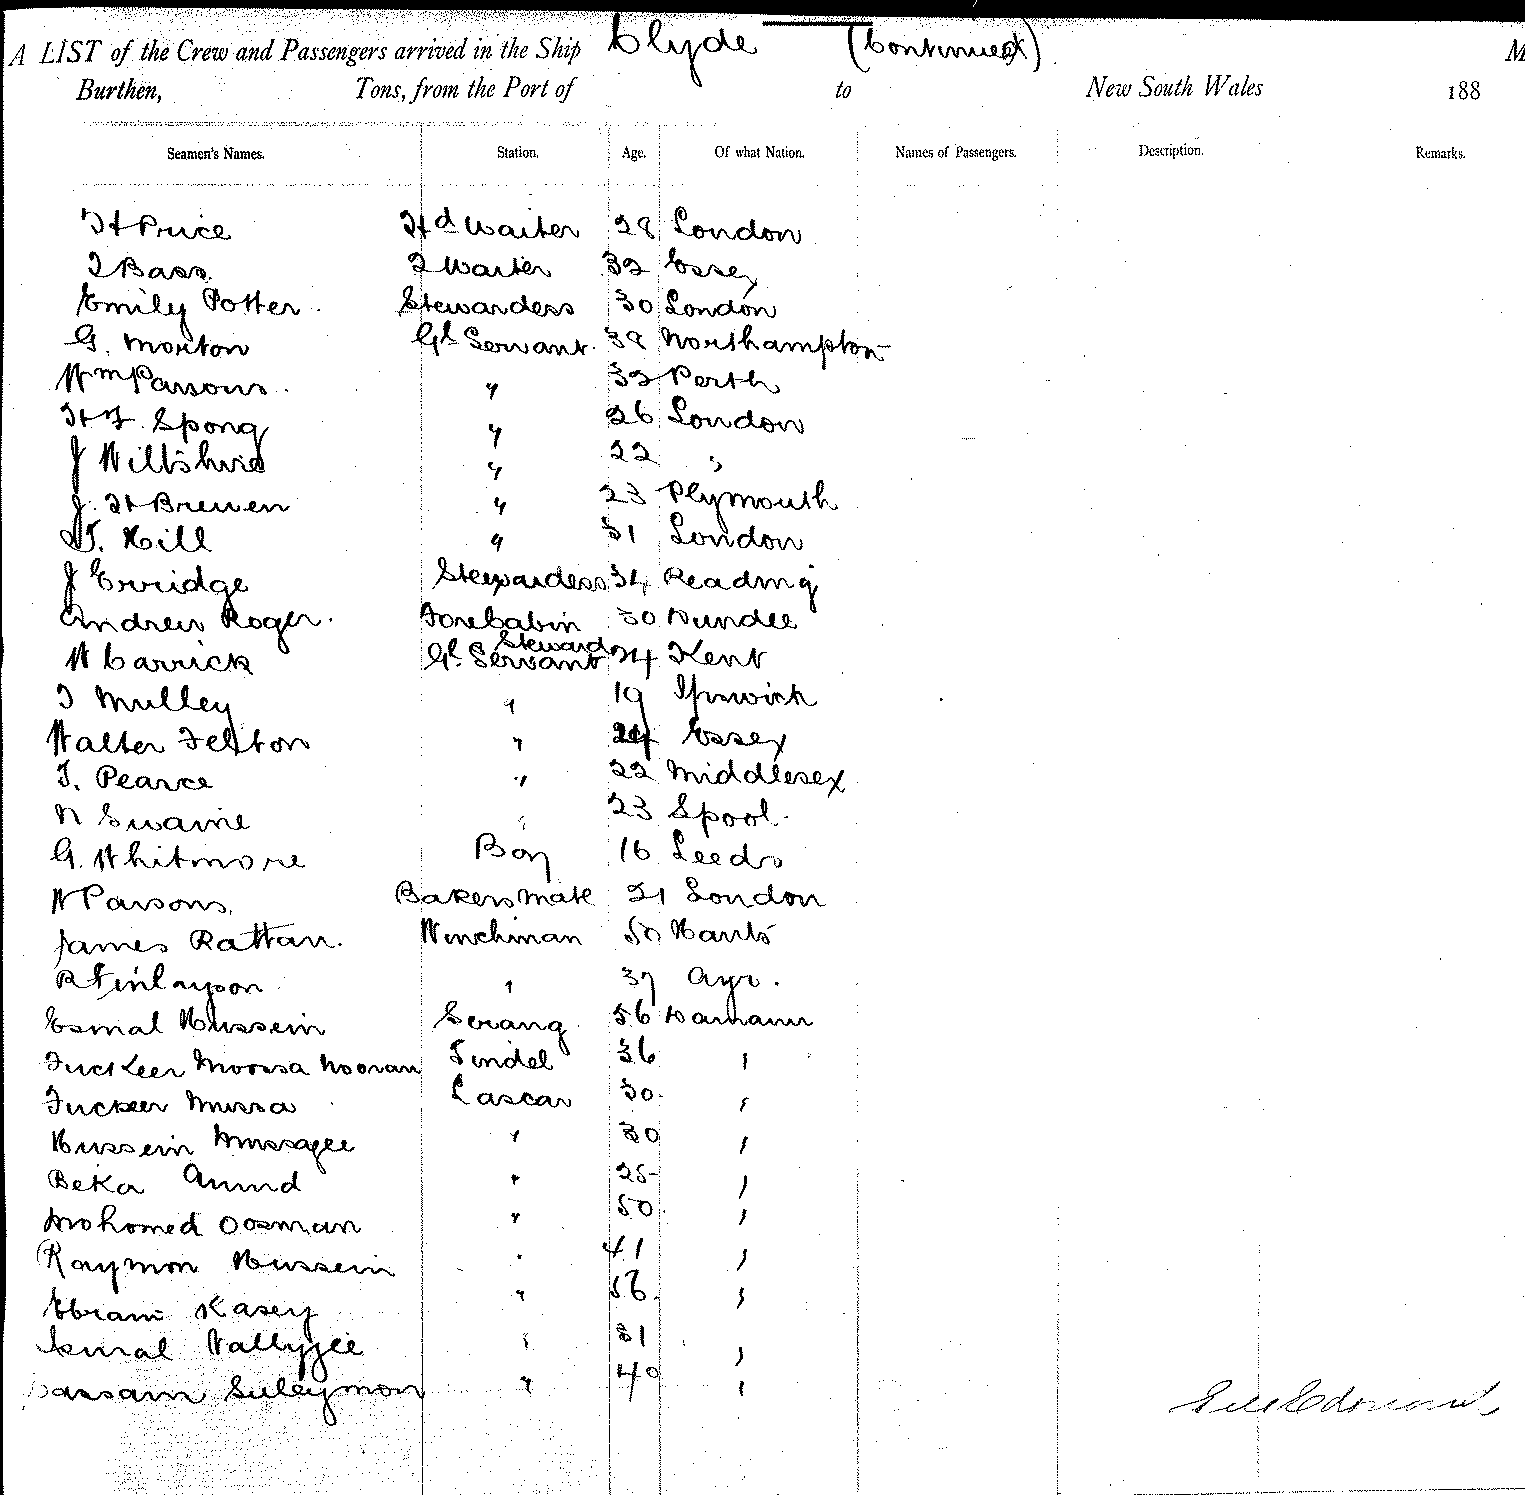 A LIST of the Crew and Passengers arrived in the Ship Clyde (Continued) M
Burthen, Tons, from the Port of to New South Wales 188
Seamen's Names. Station. Age. Of what Nation. Names of Passengers. Description. Remarks.
H Price Hd Waiter 28 London
J Bass. 2 Waiter 32 Essex
Emily Potter. Stewardess 30 London
G. Morton Gl Servant. 38 Northampton
Wm Parsons. " 32 Perth
H F. Spong " 26 London
J Wiltshire " 22 "
J. H Brewen " 23 Plymouth
T. Hill " 31 London
J Erridge Stewardess 34 Reading
Andrew Roger. Forecabin 30 Dundee
Steward
W Carrick Gl Servant 24 Kent
J Mulley " 19 Ipswich
Walter Felton " 24 Essex
J. Pearce " 22 Middlesex
N Swaine " 23 Spool.
G. Whitmore Boy 16 Leeds
W Parsons. Bakers Mate 21 London
James Rattan. Winchman 50 Hants
R Finlayson " 37 Ayr.
Esmal Hussein Serang 56 Damann
Fuckeer Moossa Nooran Tindel 36 "
Fuckeer Mussa Lascar 30. "
Hussein Mussajee " 30 "
Beka Amud " 25 "
Mohomed Oosman " 50 "
Raymon Hussein " 41 "
Ebram Kasey " 56. "
Esmal Vallyjee " 31 "
Suleymon " 40 "